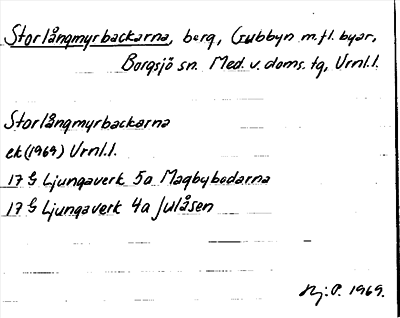 Storlångmyrbackarna, berg, Gubbyn m.fl. byar,
Borgsjö sn. Med. v. doms. tg, Vrnl.l.
Storlångmyrbackarna
ek (1969) Vrnl.l.
17 G Ljungaverk 5a Magbybodarna
17 G Ljungaverk 4a Julåsen
Hj: P. 1969.